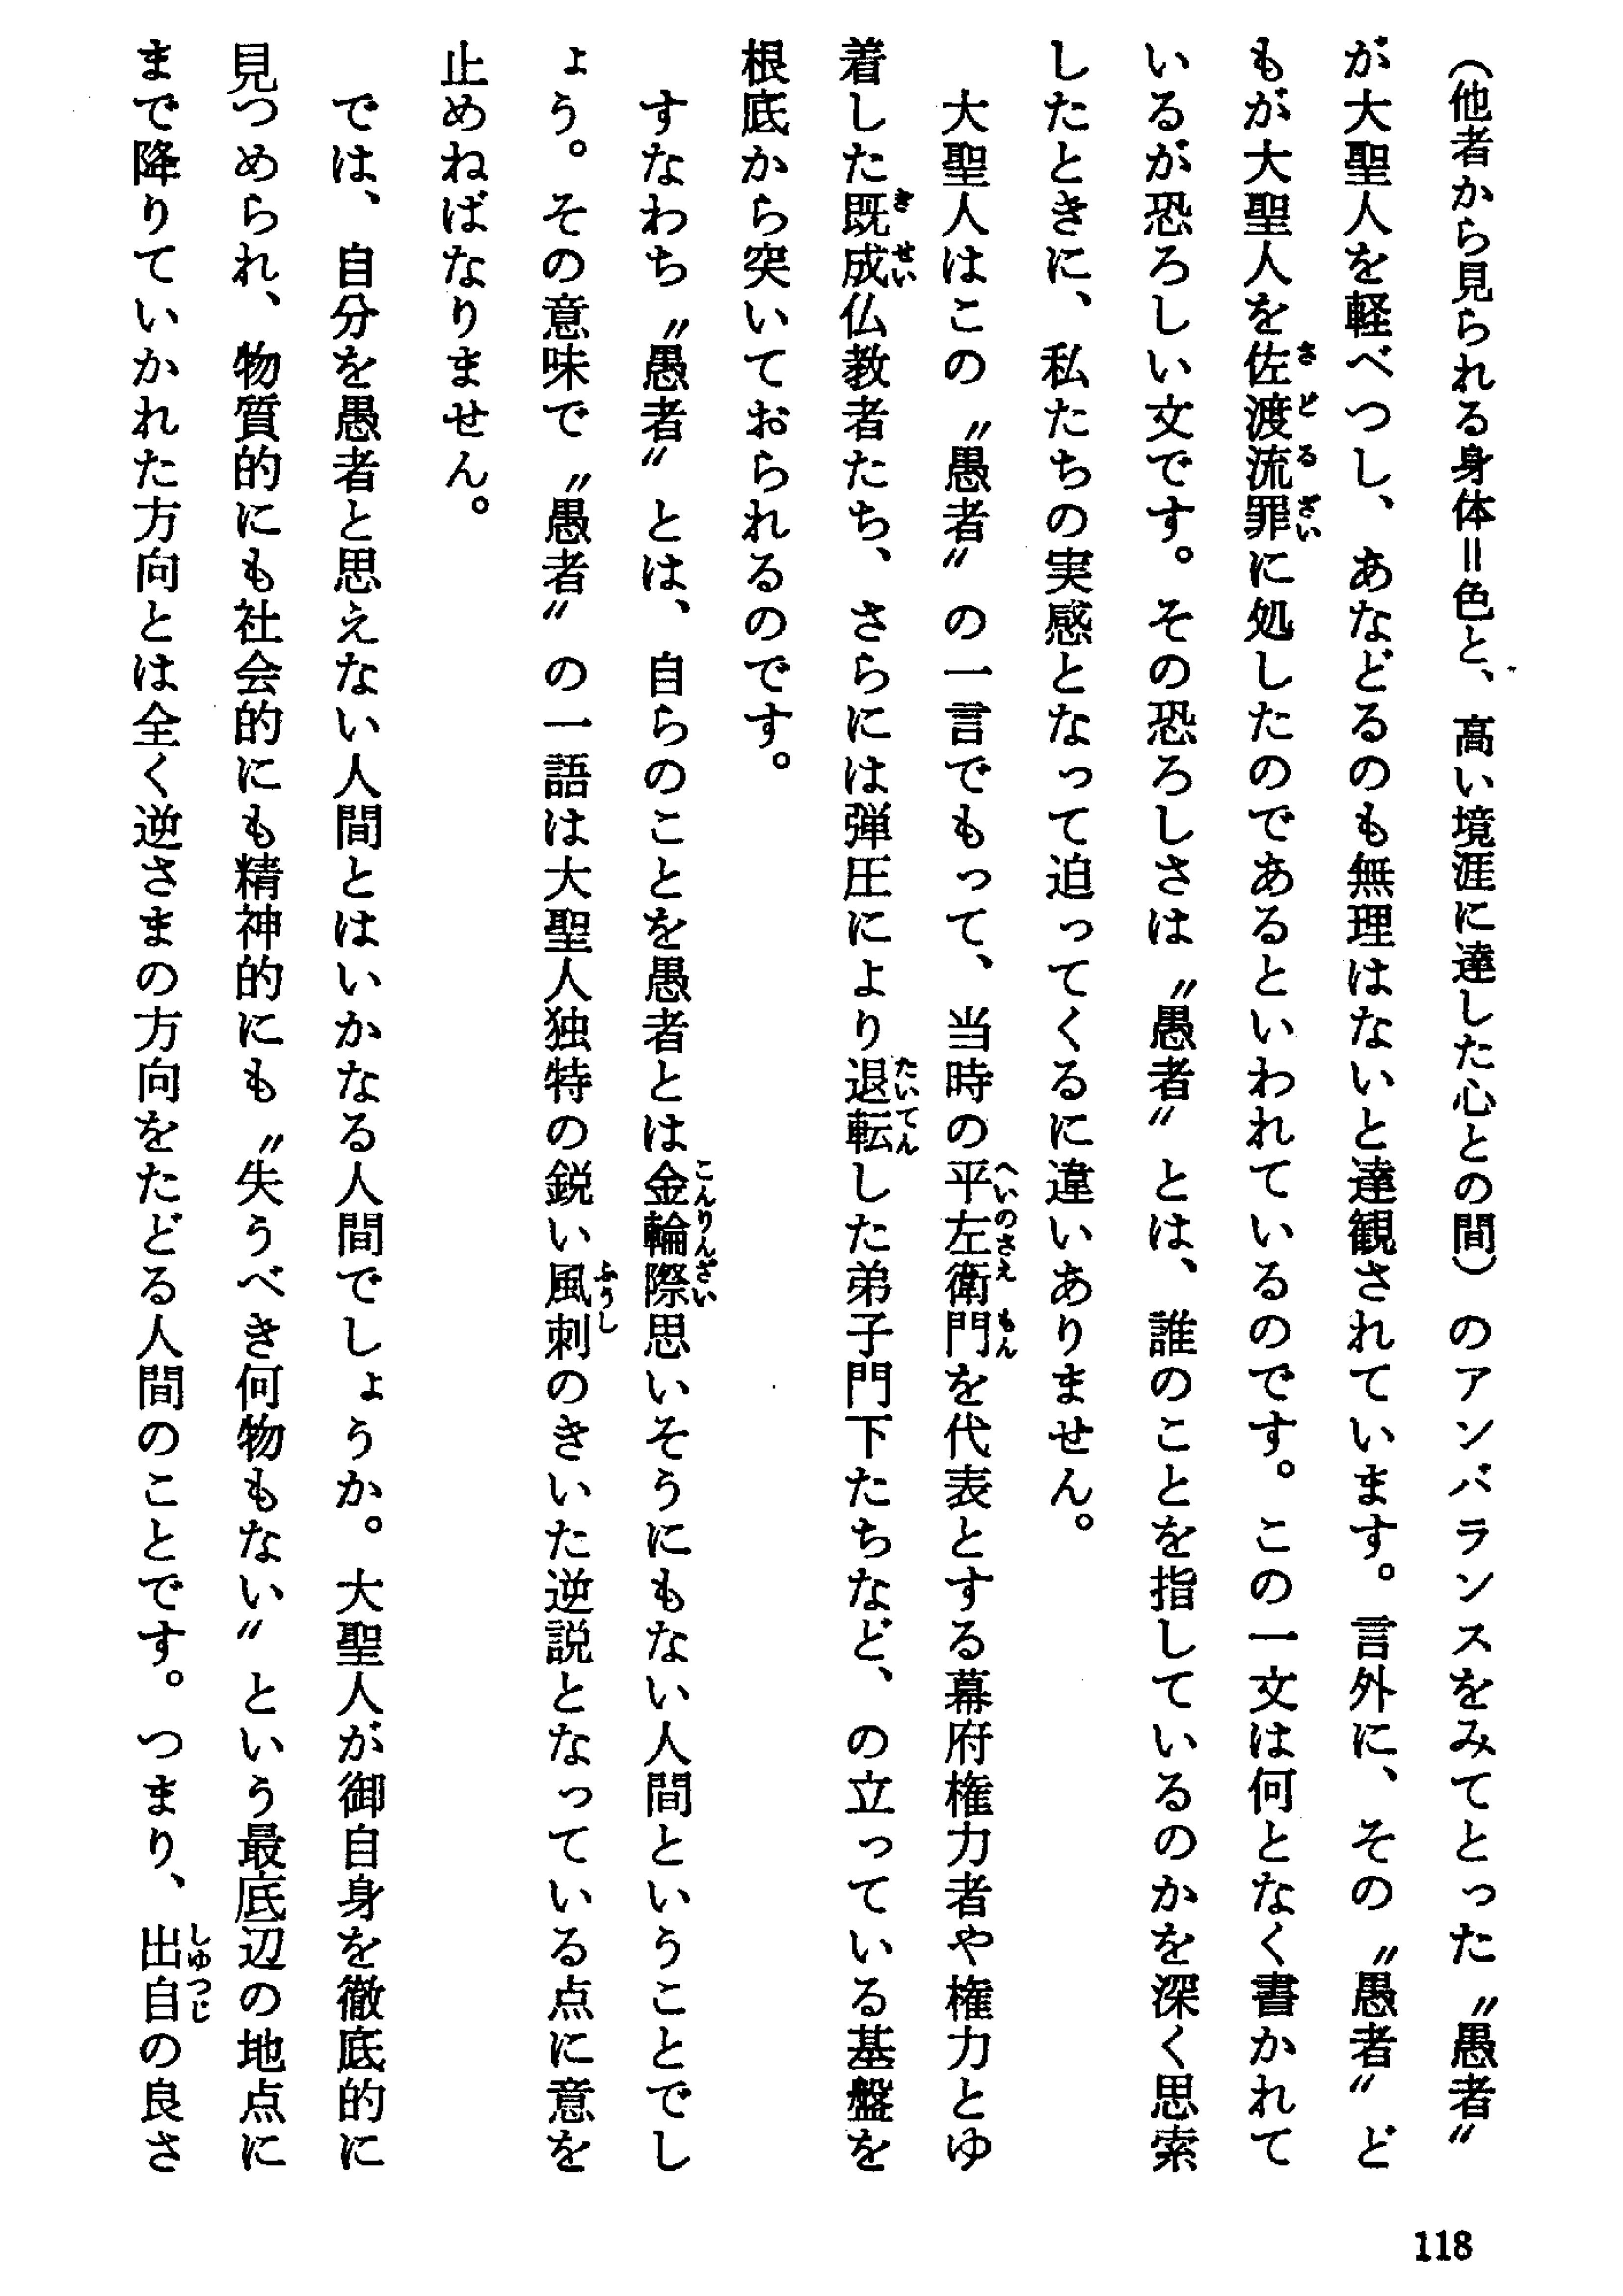 （他者から見られる身体＝色と、高い境涯に達した心との間）のアンバランスをみてとった〝愚者〟
が大聖人を軽べつし、あなどるのも無理はないと達観されています。言外に、その〝愚者〟ど
もが大聖人を佐渡流罪に処したのであるといわれているのです。この一文は何となく書かれて
いるが恐ろしい文です。その恐ろしさは〝愚者〟とは、誰のことを指しているのかを深く思索
したときに、私たちの実感となって迫ってくるに違いありません。
大聖人はこの〝愚者〟の一言でもって、当時の平左衛門を代表とする幕府権力者や権力とゆ
着した既成仏教者たち、さらには弾圧により退転した弟子門下たちなど、の立っている基盤を
根底から突いておられるのです。
すなわち〝愚者〟とは、自らのことを愚者とは金輪際思いそうにもない人間ということでし
ょう。その意味で〝愚者〟の一語は大聖人独特の鋭い風刺のきいた逆説となっている点に意を
止めねばなりません。
では、自分を愚者と思えない人間とはいかなる人間でしょうか。大聖人が御自身を徹底的に
見つめられ、物質的にも社会的にも精神的にも〝失うべき何物もない〟という最底辺の地点に
まで降りていかれた方向とは全く逆さまの方向をたどる人間のことです。つまり、出自の良さ
118